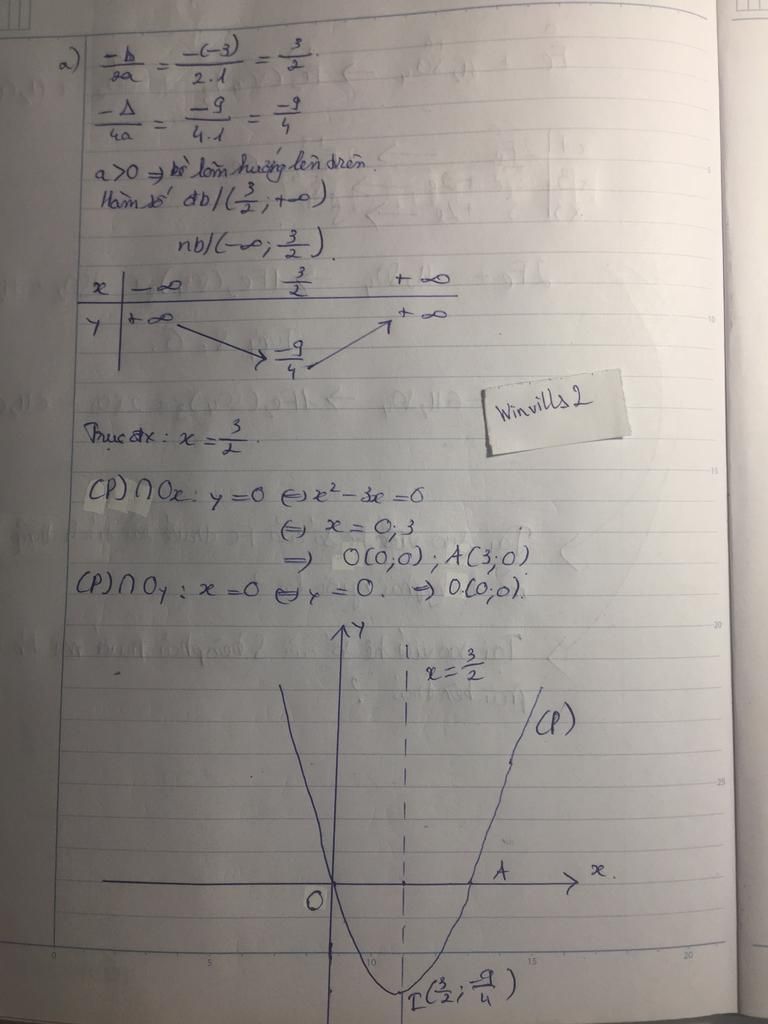 a) -b/2a = -(-3)/2.1 = 3/2.
-Δ/4a = -9/4.1 = -9/4
a>0 => bề lõm hướng lên trên.
Hàm số đb/(3/2; +∞)
nb/(-∞; 3/2).
x -∞ 3/2 +∞
y +∞ -9/4 +∞
Winvills2
Trục đx: x = 3/2.
(P) ∩ Ox: y = 0 <=> x² - 3x = 0
<=> x = 0; 3
=> O(0;0); A(3;0)
(P) ∩ Oy: x = 0 <=> y = 0. => O(0;0).
y
x = 3/2
(P)
A
x.
O
I(3/2; -9/4)